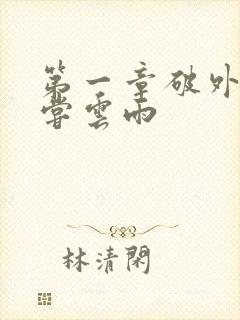 第一章破外
嘗雲雨
林清閑